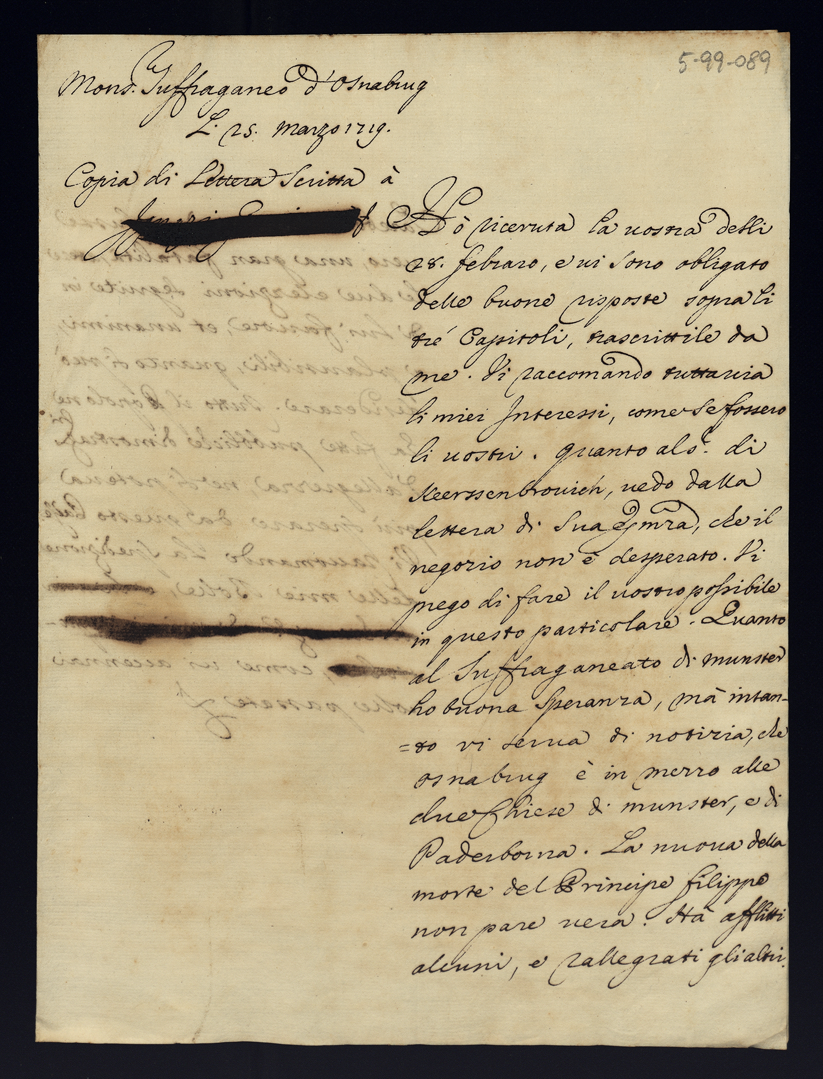 5-99-089
Mons.r Suffraganeo d'Osnabrug
L. 25. Marzo 1719.
Copia di Lettera Scritta à
Hò riceruta la uostra delli
28. febraro, e ui sono obligato
delle buone risposte sopra li
trè Capitoli, trascrittile da
me. Vi raccomando tuttauia
li miei Interessi, come Se fossero
li uostri. Quanto al S.r di
Keerssenbrouich, uedo dalla
lettera di Sua Em.za, che il
negozio non è desperato. Vi
prego di fare il uostro possibile
in questo particolare. Quanto
al Suffraganeato di munster
ho buona Speranza, mà intan-
=to vi serua di notizia, che
osnabrug è in mezzo alle
due Chiese di munster, e di
Paderborna. La nuoua della
morte del Principe filippo
non pare uera. Hà afflitti
alcuni, e rallegrati gli altri.